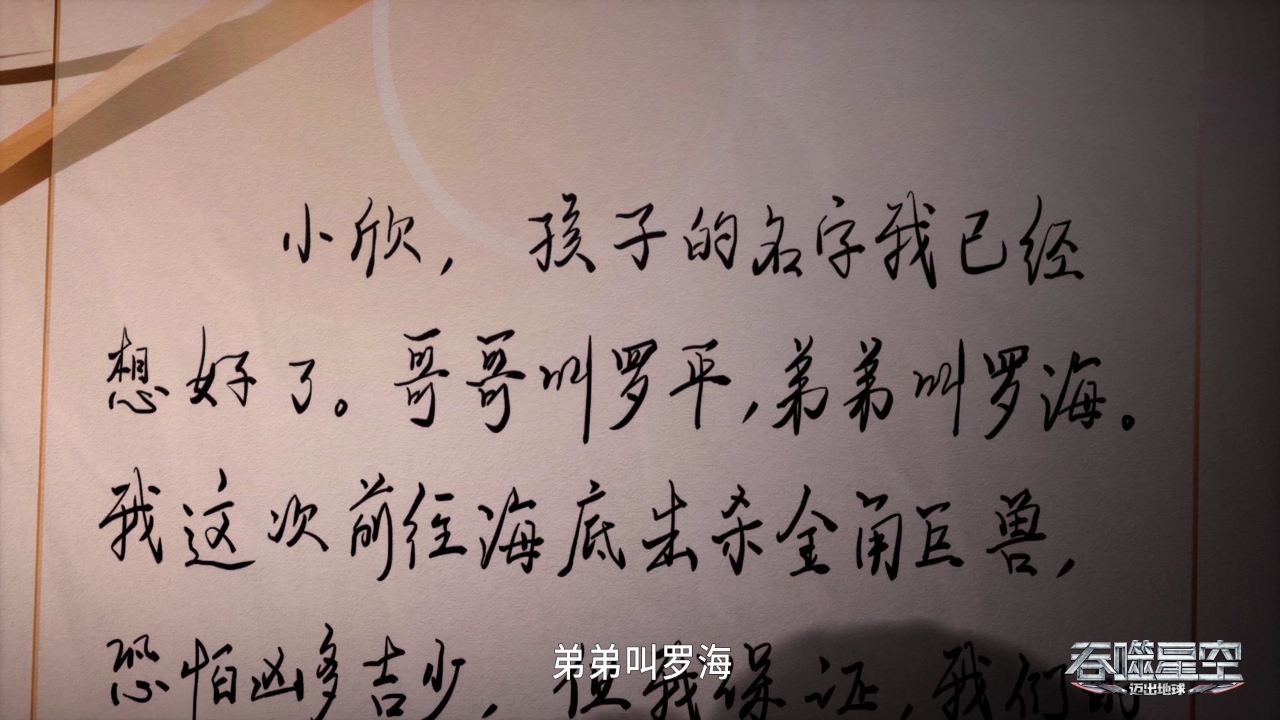 小欣，孩子的名字我已经
想好了。哥哥叫罗平，弟弟叫罗海。
我这次前往海底击杀金角巨兽，
恐怕凶多吉少，但我保证，我们的
弟弟叫罗海
吞噬星空
迈出地球